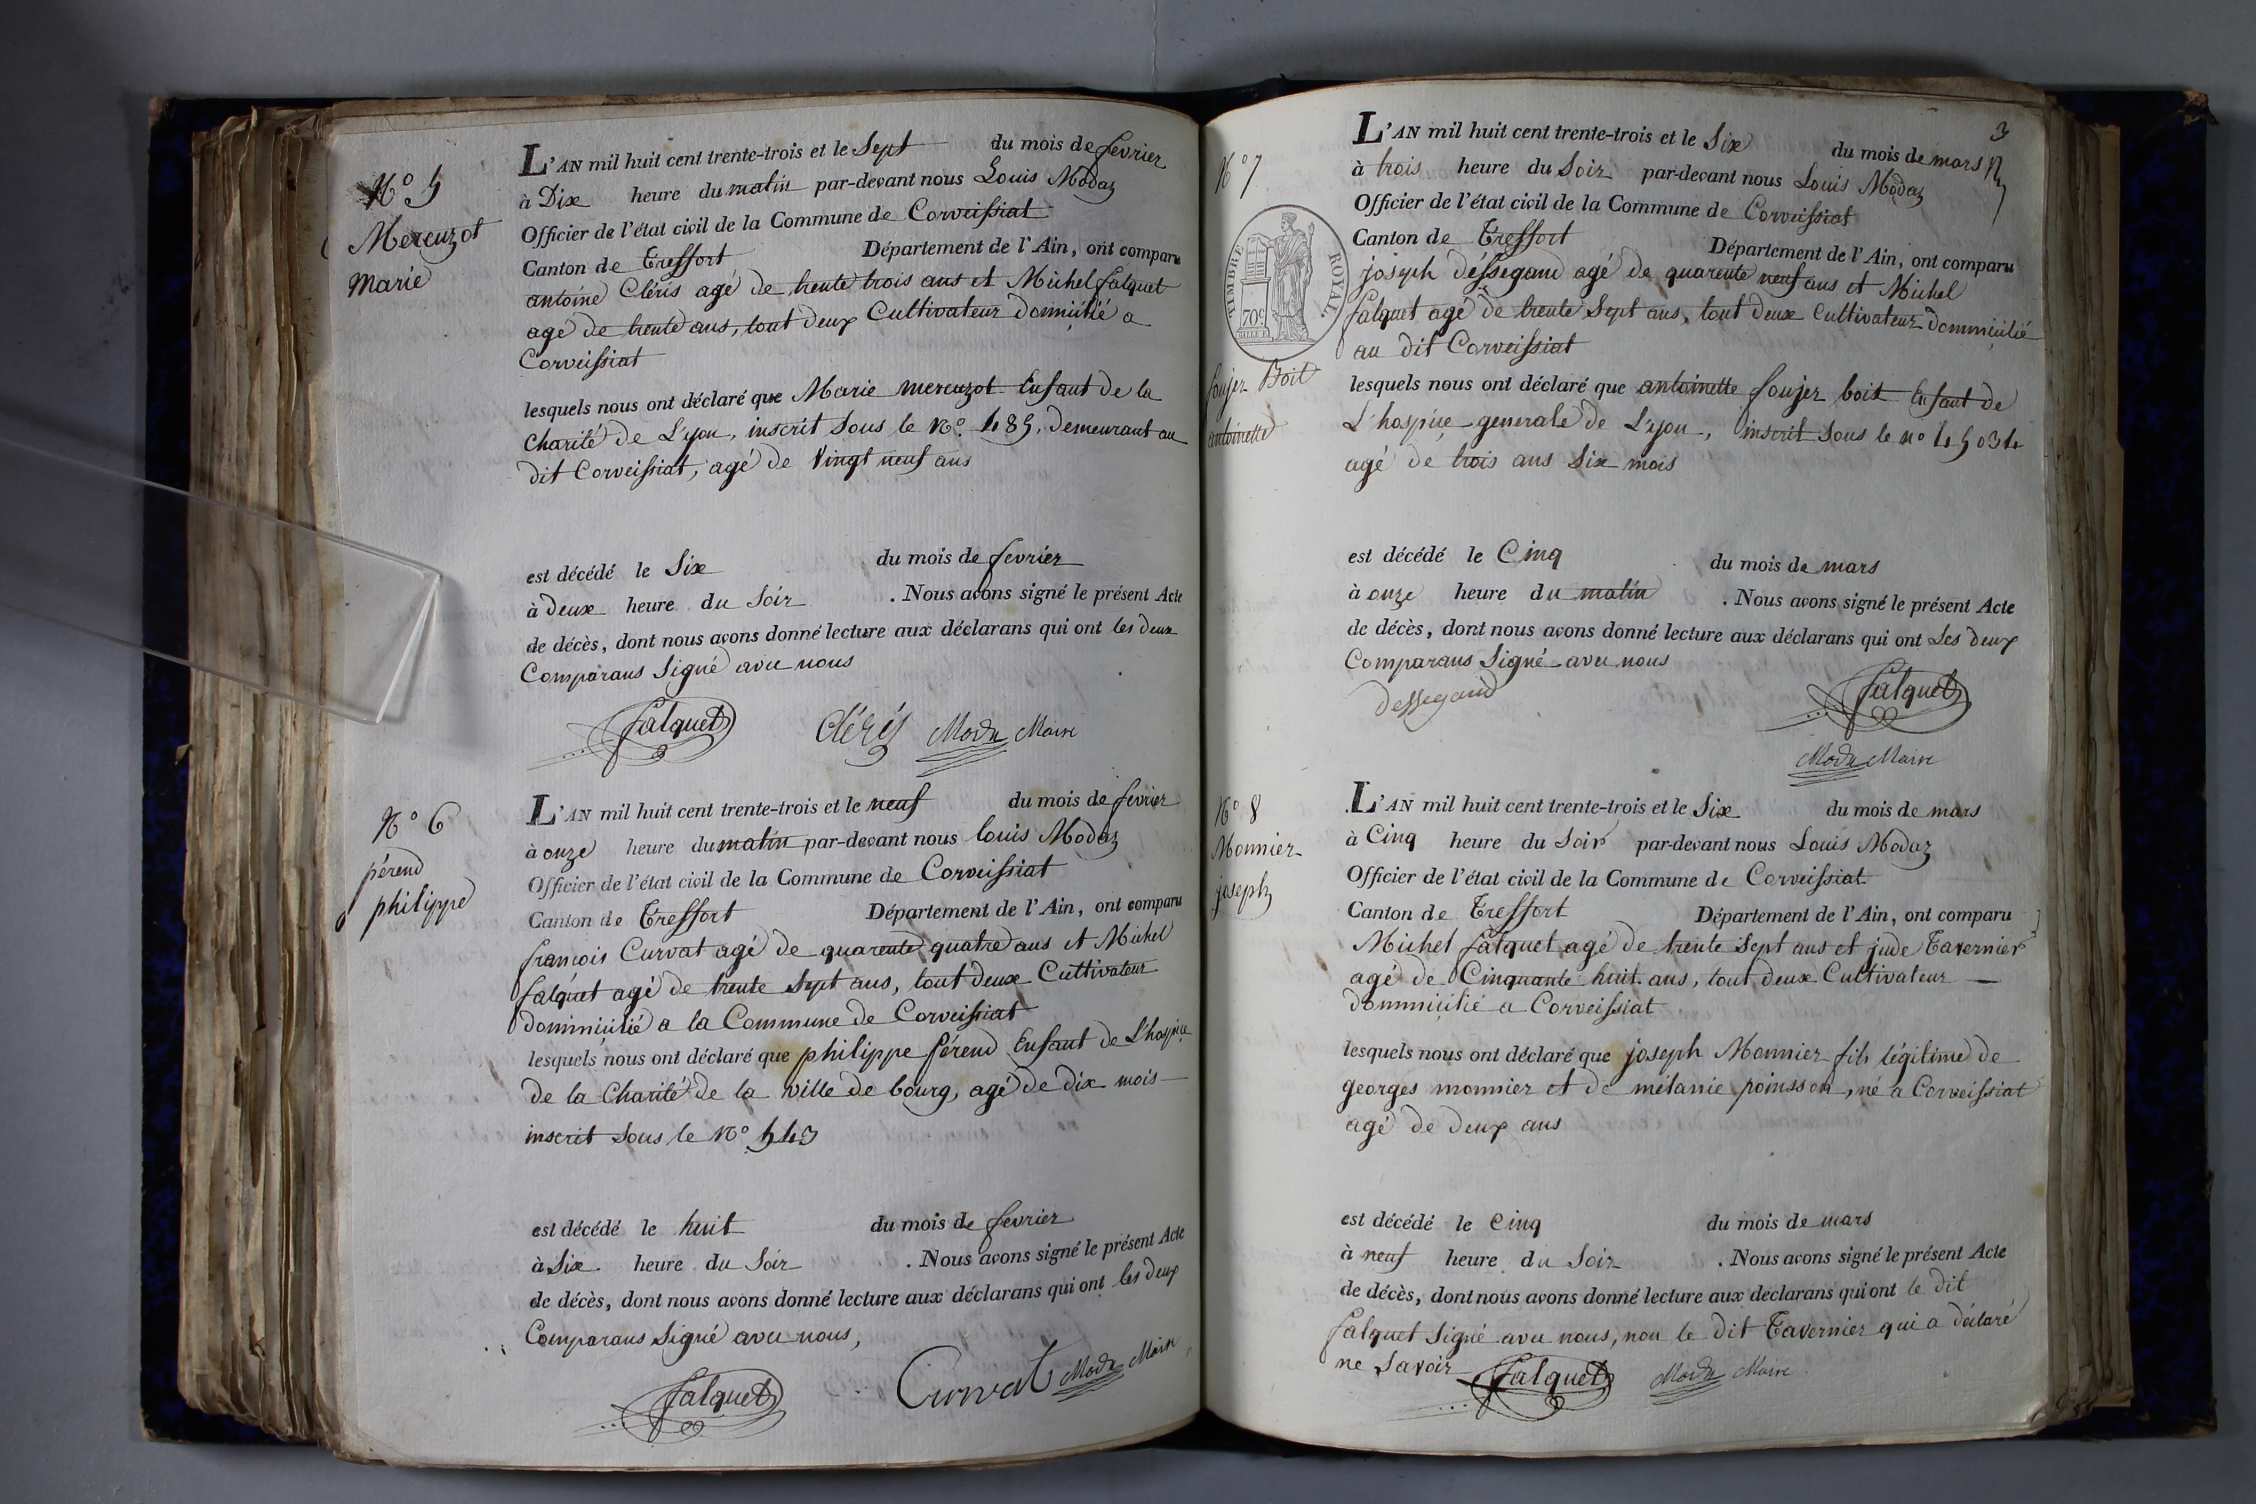 N.° 5
Mercuzot
Marie
L'AN mil huit cent trente-trois et le Sept du mois de fevrier
à Dix heure du matin par-devant nous Louis Modaz
Officier de l'état civil de la Commune de Corveissiat
Canton de Treffort Département de l'Ain, ont comparu
antoine Cléris agé de trente trois ans et Michel falquet
agé de trente ans, tout deux Cultivateur dommicilié a
Corveissiat
lesquels nous ont déclaré que Marie mercuzot Enfant de la
Charité de Lyon, inscrit sous le N.° 485, demeurant au
dit Corveissiat, agé de vingt neuf ans
est décédé le Six du mois de fevrier
à deux heure du Soir . Nous avons signé le présent Acte
de décès, dont nous avons donné lecture aux déclarans qui ont les deux
Comparans Signé avec nous
falquet Cléris Modaz Maire
N.° 6
pérend
philippe
L'AN mil huit cent trente-trois et le neuf du mois de fevrier
à onze heure du matin par-devant nous louis Modaz
Officier de l'état civil de la Commune de Corveissiat
Canton de Treffort Département de l'Ain, ont comparu
francois Curvat agé de quarente quatre ans et Michel
falquet agé de trente Sept ans, tout deux Cultivateur
dommicilié a la Commune de Corveissiat
lesquels nous ont déclaré que philippe pérend Enfant de L'hospice
de la Charité de la ville de bourg, agé de dix mois
inscrit sous le N° 543
est décédé le huit du mois de fevrier
à Six heure du Soir . Nous avons signé le présent Acte
de décès, dont nous avons donné lecture aux déclarans qui ont les deux
Comparans Signé avec nous,
falquet Curvat Modaz Maire
3
N.° 7
TIMBRE ROYAL
70c
foujer Boit
antoinette
L'AN mil huit cent trente-trois et le Six du mois de mars
à trois heure du Soir par-devant nous Louis Modaz
Officier de l'état civil de la Commune de Corveissiat
Canton de Treffort Département de l'Ain, ont comparu
joseph déssegaud agé de quarente neuf ans et Michel
falquet agé de trente Sept ans, tout deux Cultivateur dommicilié
au dit Corveissiat
lesquels nous ont déclaré que antoinette foujer boit Enfant de
L'hospice generale de Lyon, inscrit sous le n° 45034
agé de trois ans six mois
est décédé le Cinq du mois de mars
à onze heure du matin . Nous avons signé le présent Acte
de décès, dont nous avons donné lecture aux déclarans qui ont Les deux
Comparans Signé avec nous
dessegaud falquet
Modaz Maire
N.° 8
Monnier
joseph
L'AN mil huit cent trente-trois et le Six du mois de mars
à Cinq heure du Soir par-devant nous Louis Modaz
Officier de l'état civil de la Commune de Corveissiat
Canton de Treffort Département de l'Ain, ont comparu
Michel falquet agé de trente Sept ans et jude Tavernier
agé de Cinquante huit ans, tout deux Cultivateur
dommicilié a Corveissiat
lesquels nous ont déclaré que joseph Monnier fils légitime de
georges monnier et de mélanie poinsson, né a Corveissiat
agé de deux ans
est décédé le Cinq du mois de mars
à neuf heure du Soir . Nous avons signé le présent Acte
de décès, dont nous avons donné lecture aux déclarans qui ont le dit
falquet Signé avec nous, non le dit Tavernier qui a déclaré
ne Savoir falquet Modaz Maire